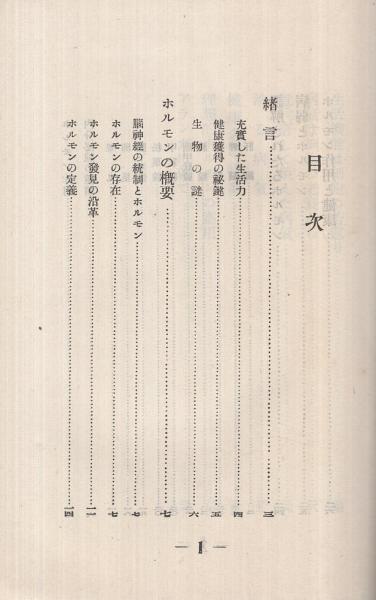 目次
緒言……三
充實した生活力……四
健康獲得の祕鍵……五
生物の謎……六
ホルモンの槪要……七
腦神經の統制とホルモン……七
ホルモンの存在……七
ホルモン發見の沿革……一一
ホルモンの定義……一四
— 1 —